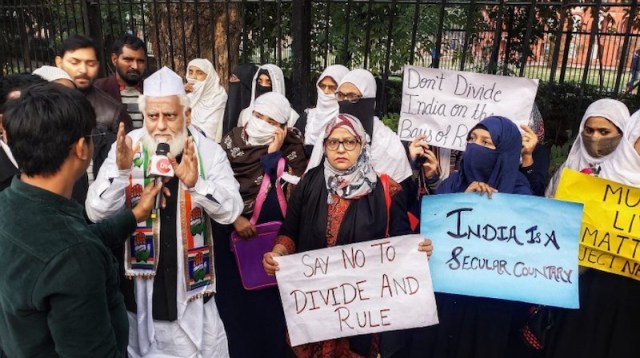 Don't Divide
India on the
Bays of
SAY NO TO
DIVIDE AND
RULE
INDIA IS A
SECULAR COUNTRY
MU
LI
MATTE
JECT N